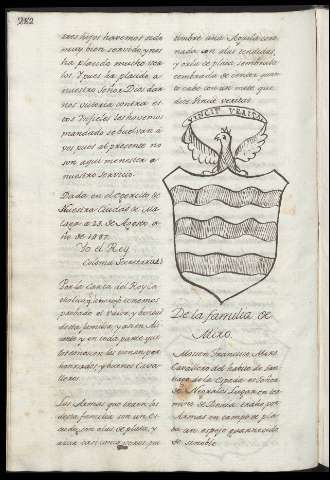 282
tres hijos havemos sido
muy bien servido, y nos
ha placido mucho ver
los. Y pues ha placido a
nuestro Señor Dios dar
nos victoria contra es
tos Infieles los havemos
mandado se buelvan á
vos pues al presente no
son aqui menester a
nuestro servicio.
Dada en el Exercito de
Nuestra Ciudad de Ma
laga a 23. de Agosto
año de 1487.
Yo el Rey
Coloma Secretario
Por la Carta del Rey Ca
tholico, q. arriba tenemos
probado el valor y
desta familia, y assi en Mi
y en toda parte que
los conocen los tienen por
honrados, y buenos Cava
lleros.
Las Armas que traen los
desta familia son un es
cudo, con olas de plata, y
azur
timbre una Aguila coro
nada con alas tendidas,
y orla de plata sembrada
con un mote que
dice Vincit veritas.
VINCIT VERITAS
De la familia de
Miro.
Mossen Francisco Miro
Cavallero del habito de San
tiago de la Espada es Señor
de Lugar en ter
mino de Denia, trahe por
Armas en campo de pla
ta un espejo guarnecido
de